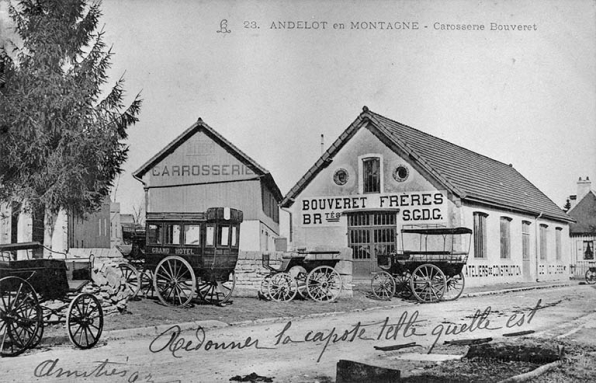 23. ANDELOT en MONTAGNE - Carosserie Bouveret
CARROSSERIE
BOUVERET FRÈRES
BR.TÉS S.G.D.G.
GRAND HOTEL
ATELIERS DE CONSTRUCTION
Redonner la capote telle quelle est